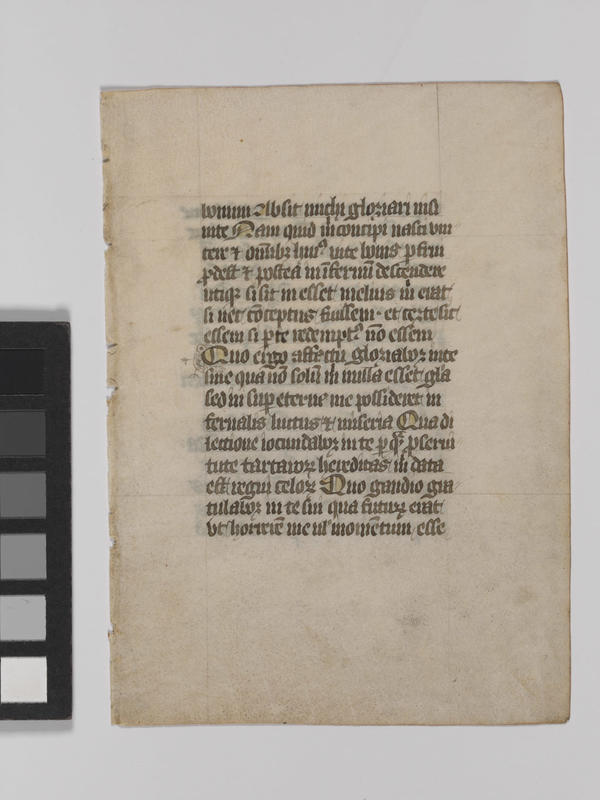 bonum Absit michi gloriari nisi
in te Nam quid m̄ concipi nasci viu
ere ⁊ omībꝫ huiꝰ vite bonis ꝑfrui
ꝓdest ⁊ postea in īfernū descendere
utiqꝫ si sit m̄ esset melius m̄ erat
si nec cōceptus fuissem · et certe sic
essem si ꝑ te redemptꝰ nō essem
Quo ergo affectu gloriaboꝛ in te
sine qua nō solū m̄ nulla esset gla
sed insuꝑ eternꝰ me possideret in
fernalis luctus ⁊ miseria Qua di
lectione iocundaboꝛ in te ꝑ quā ꝓ serui
tute tartaroꝝ hereditas m̄ data
est regni celoꝝ Quo gaudio gra
tulaboꝛ in te sin qua futurꝝ erat
vt horrerē me ul momētum esse